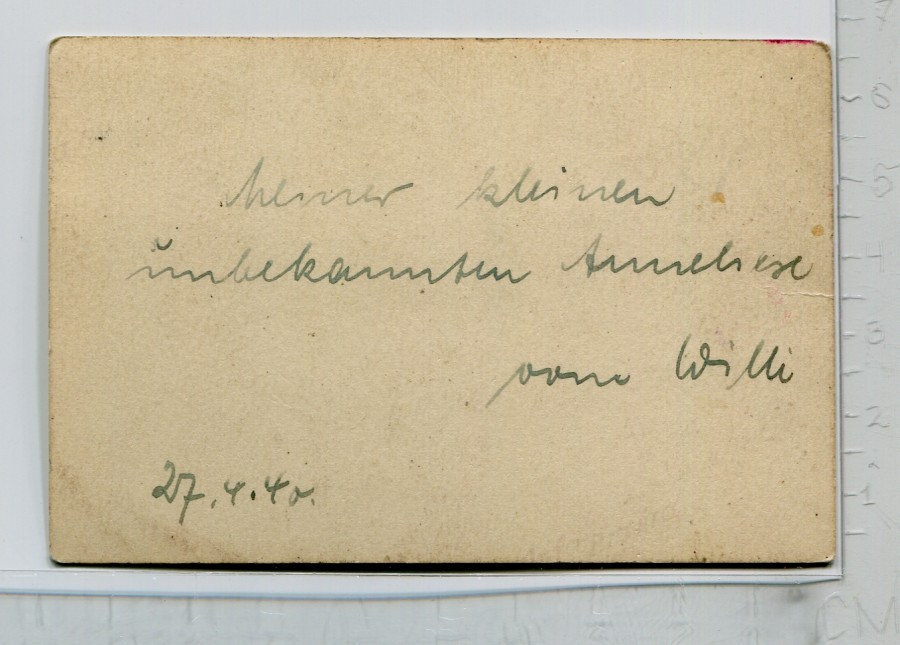 Meiner kleinen
unbekannten Anneliese
vom Willi
27.4.40.
7
6
5
4
3
2
1
CM